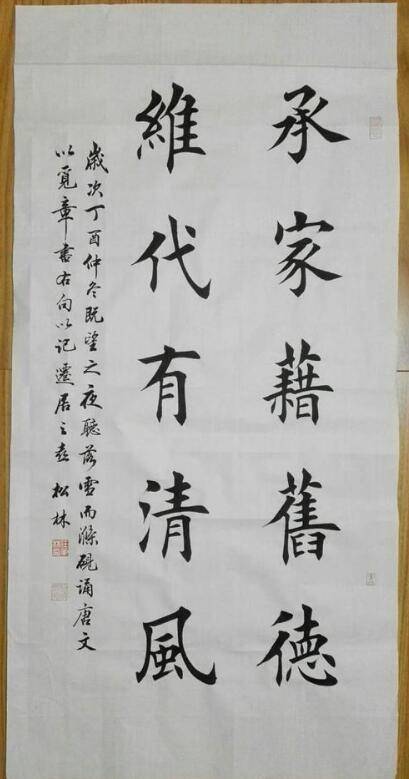 承家藉舊德
維代有清風
歲次丁酉仲冬既望之夜聽落雪而滌硯誦唐文
以覓章書右句以记遷居之喜 松林